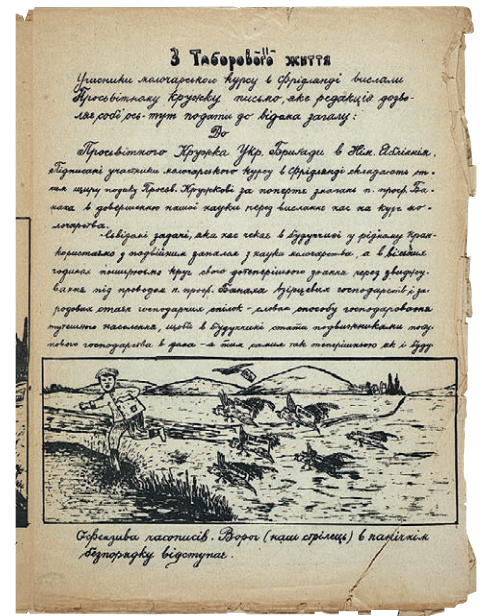 З Таборового життя
Учасники молочарського курсу в Фрідлянді вислали
Просвітному Кружку письмо, яке редакція дозво-
ляє собі ось-тут подати до відома загалу:
До
Просвітного Кружка Укр. Бригади в Нім. Ябліннім.
Підписані учасники молочарського курсу в Фрідлянді складають от-
сим щиру подяку Просв. Кружкові за поперте знанням п. проф. Ба-
наха в довершенню нашої науки перед висланнє нас на курс мо-
лочарства.
Свідомі задачі, яка нас чекає в будуччині у ріднім Краю
користаємо з подвійним запалом з науки молочарства, а в вільних
годинах поширюємо круг свого дотеперішного знання через звиджу-
ваннє під проводом п. проф. Банаха взірцевих господарств і за-
родових стаєн господарчих спілок - словом способу господаровання
тутешного населення, щоби в будуччині стати подвижниками посту-
пового господарства в дома - а тим самим так теперішною як і буду
Офензива часописів. Ворог (наш стрілець) в панічнім
безпорядку відступає.